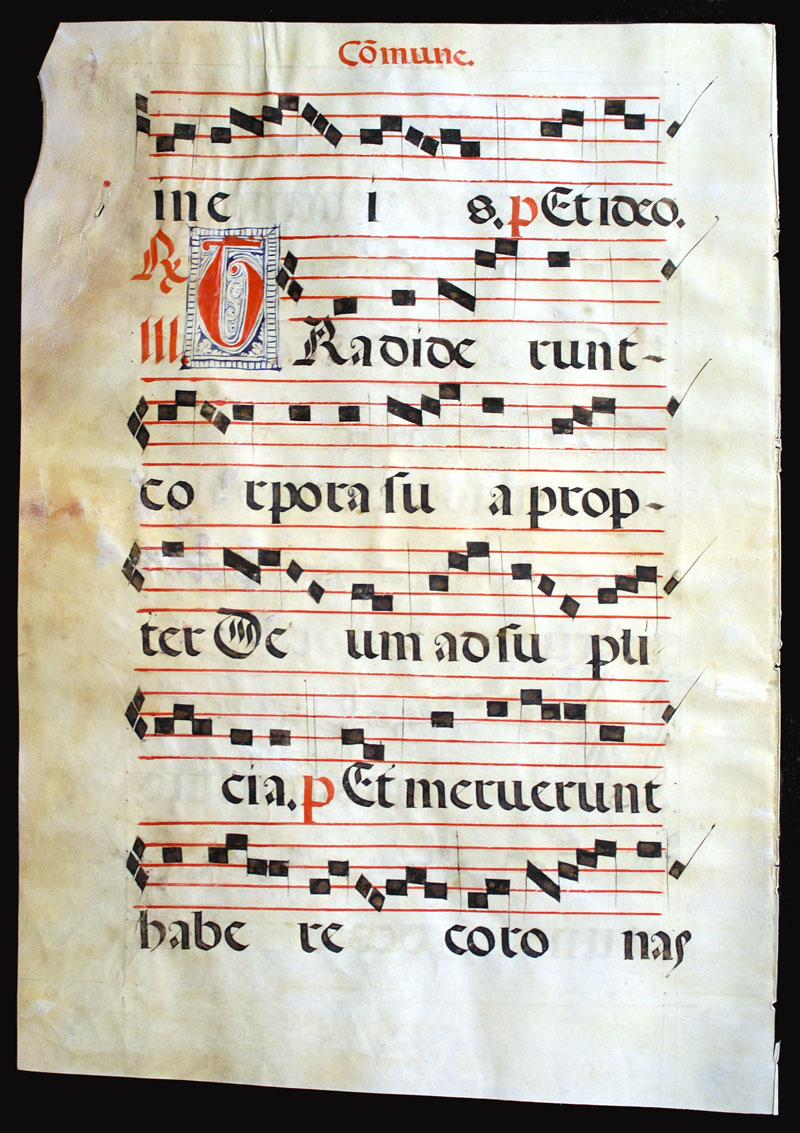 Cõmune.
ine i s. p Et ideo.
℞ TRadide runt-
III.
co rpora su a prop-
ter De um ad su pli
cia. p Et meruerunt
habe re coro nas